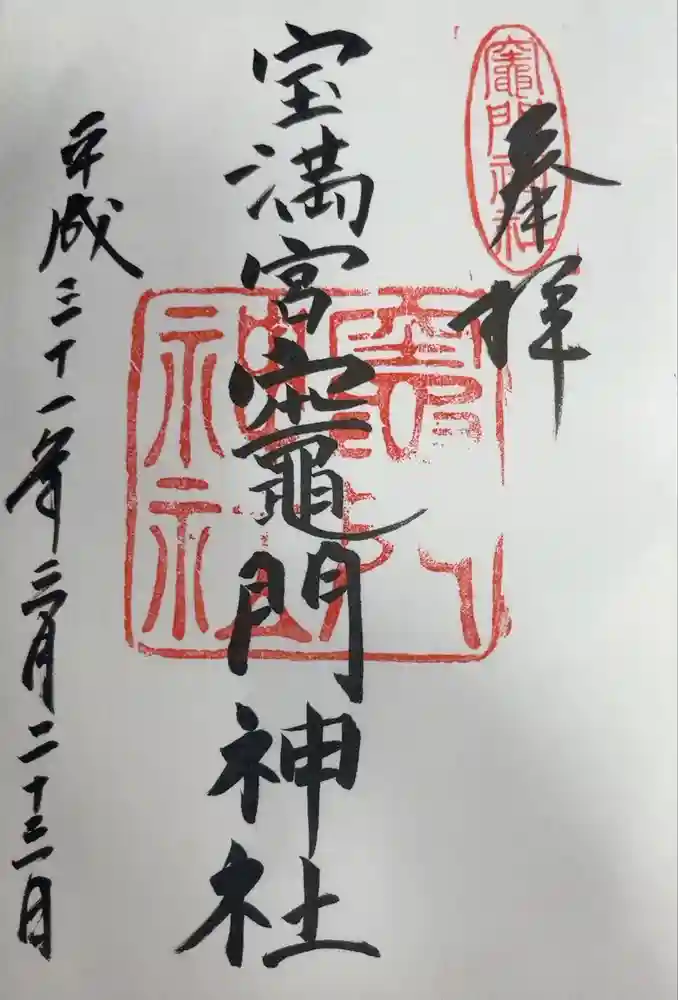 奉拝
竈門神社
宝満宮竈門神社
平成三十一年三月二十三日